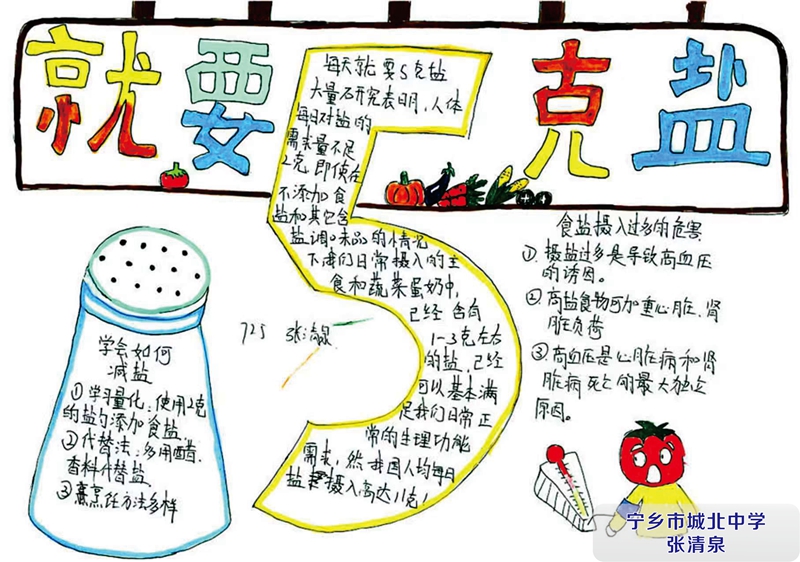 就要5克盐
每天就要5克盐
大量石开究表明,人体
每日对盐的
需求量不足
2克,即使在
不添加食
盐和其它含
盐调味品的情况
下,我们日常摄入的主
食和蔬菜蛋奶中,
已经含有
1-3克左右
的盐,已经
可以基本满
足我们日常正
常的生理功能
需求,然我国人均每日
盐摄入高达11克!
725 张清泉
学会如何
减盐
①学习量化:使用2克
的盐勺添加食盐
②代替法:多用醋、
香料代替盐
③烹饪方法多样
食盐摄入过多的危害
①.摄盐过多是导致高血压
的诱因。
②高盐食物可加重心脏、肾
脏负荷
③高血压是心脏病和肾
脏病死亡的最大独立
原因。
宁乡市城北中学
张清泉